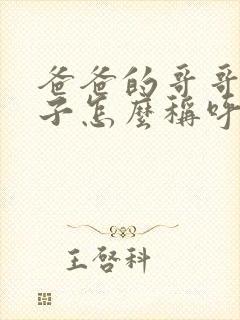 爸爸的哥哥
子怎麼稱呼
王啓科